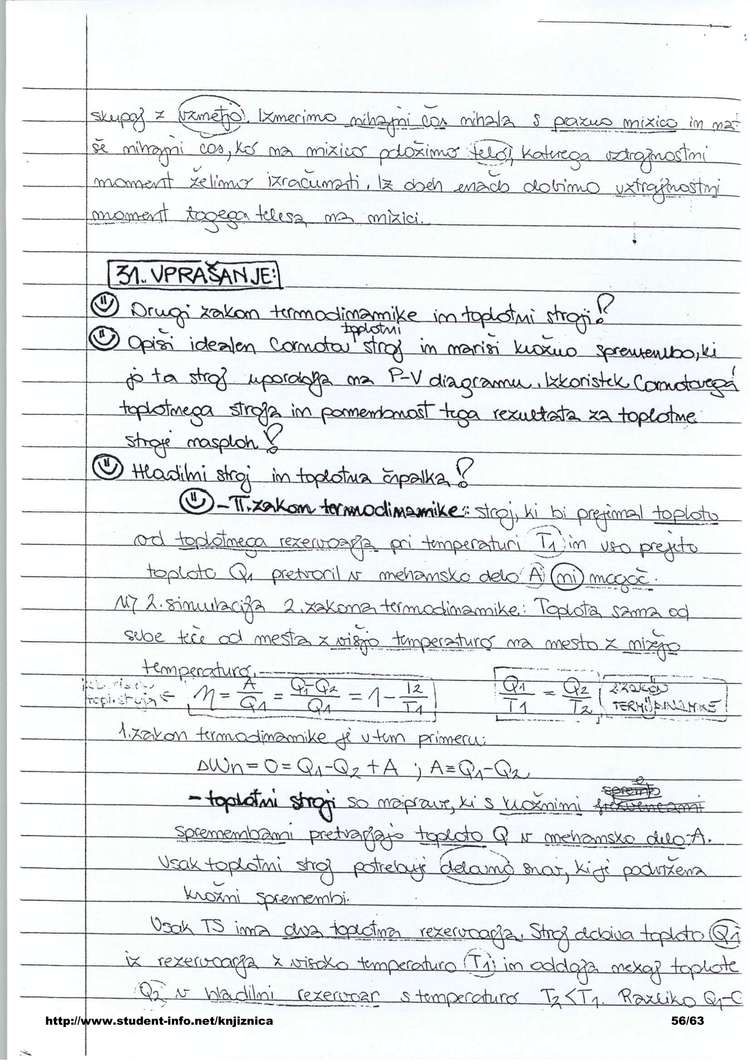 skupaj z vzmetjo. Izmerimo nihajni čas nihala s prazno mizico in na-
še nihajni čas, ko na mizico položimo telo, katerega vztrajnostni
moment želimo izračunati. Iz obeh enačb dobimo vztrajnostni
moment togega telesa na mizici.
31. VPRAŠANJE:
Drugi zakon termodinamike in toplotni stroji?
toplotni
Opiši idealen Carnotov stroj in nariši krožno spremembo, ki
jo ta stroj uporablja na P-V diagramu. Izkoristek Carnotovega
toplotnega stroja in pomembnost tega rezultata za toplotne
stroje nasploh?
Hladilni stroj in toplotna črpalka?
- II. zakon termodinamike: stroj, ki bi prejimal toploto
od toplotnega rezervoarja pri temperaturi T1 in vso prejeto
toploto Q1 pretvoril v mehansko delo A (ni) mogoč.
2. simulacija 2. zakona termodinamike: Toplota sama od
sebe teče od mesta z višjo temperaturo na mesto z nižjo
temperaturo.
← η = A/Q1 = Q1-Q2/Q1 = 1 - T2/T1 Q1/T1 = Q2/T2 2. ZAKON TERMODINAMIKE
1. zakon termodinamike je v tem primeru:
ΔWn = 0 = Q1 - Q2 + A ; A = Q1 - Q2
- toplotni stroji so naprave, ki s krožnimi
spremembami pretvarjajo toploto Q v mehansko delo A.
Vsak toplotni stroj potrebuje delavno snov, ki je podvržena
krožni spremembi.
Vsak TS ima dva toplotna rezervoarja. Stroj dobiva toploto Q1
iz rezervoarja z visoko temperaturo (T1) in oddaja nekaj toplote
Q2 v hladilni rezervoar s temperaturo T2 < T1. Razliko Q1-
http://www.student-info.net/knjiznica 56/63